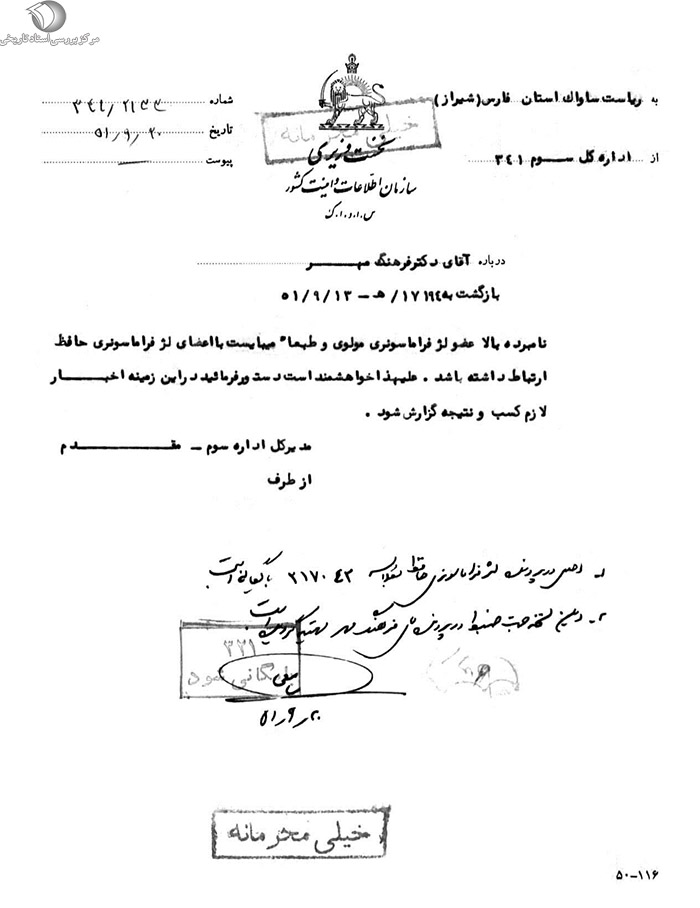 مرکز بررسی اسناد تاریخی
به ریاست ساواک استان فارس(شیراز)
از اداره کل سوم ۳۴۱
خیلی محرمانه
نخست وزیری
سازمان اطلاعات و امنیت کشور
س.ا.و.ا.ک
شماره
تاریخ ۵۱/۹/۲۰
پیوست
درباره آقای دکتر فرهنگ مهـــر
بازگشت به ۱۷۱۹۴/هـ - ۵۱/۹/۱۳
نامبرده بالا عضو لژ فراماسونری مولوی و طبعاً میبایست با اعضای لژ فراماسونری حافظ
ارتباط داشته باشد . علیهذا خواهشمند است دستور فرمائید در این زمینه اخبـــار
لازم کسب و نتیجه گزارش شود .
مدیرکل اداره سوم - مقـــــدم
از طرف
۱- اصل در پرونده لژ فراماسونری حافظ ۳۱۷۰۴۳ بایگانی است
۲- در پرونده فرهنگ مهر
۳۲۱
بایگانی شود
۲۰ر۹ر۵۱
خیلی محرمانه
۵۰-۱۱۶